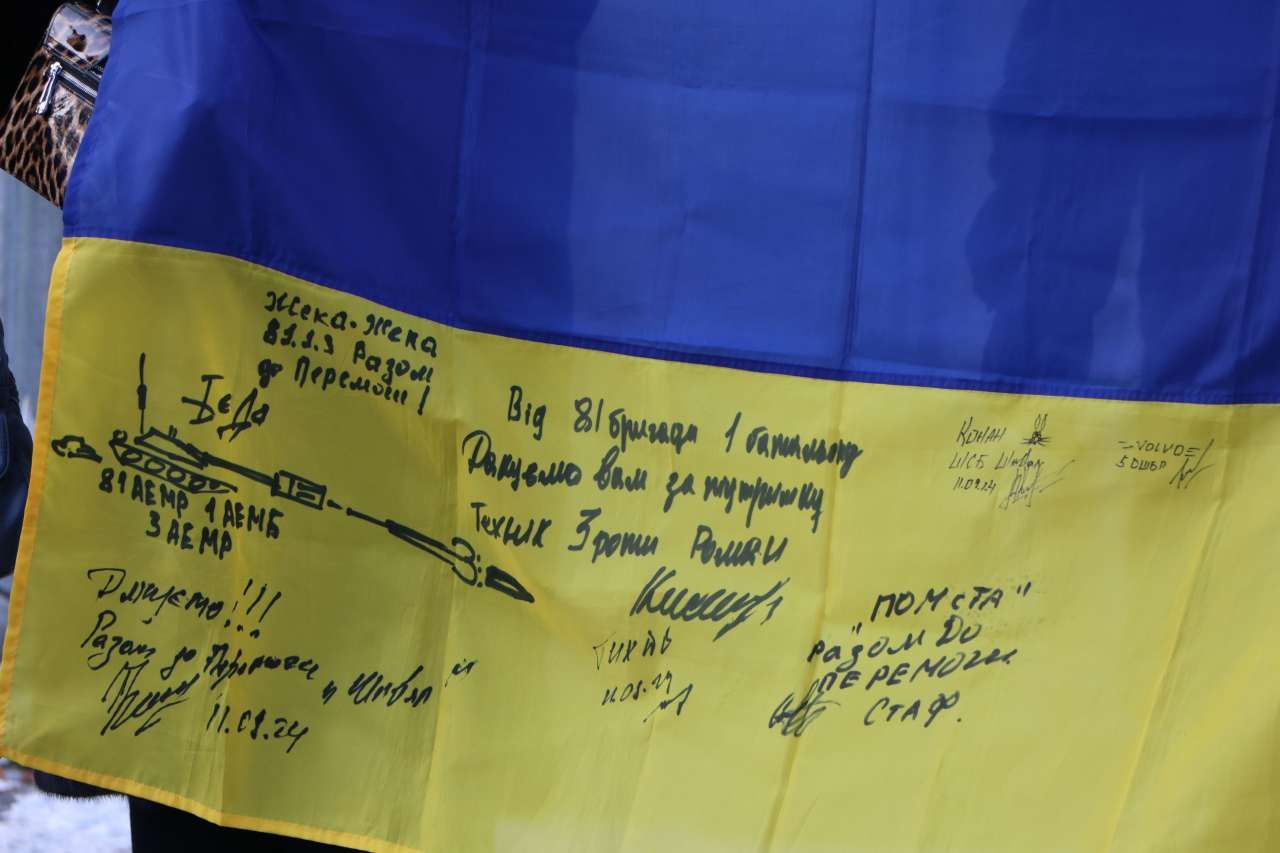 Жека-Жека
81.1.3 Разом
до Перемоги!
БеДа
81 АЕМР 1 АЕМБ
3 АЕМР
Від 81 бригади 1 батальону
Дякуємо вам за підтримку
Технік 3 роти Роман
Дякуємо!!!
Разом до Перемоги
11.09.24
Тихий
11.09.24
"ПОМСТА"
РАЗОМ ДО
ПЕРЕМОГИ
СТАФ.
КОНАН
ШСБ
11.09.24
-=VOLVO=-
5 ОШБР